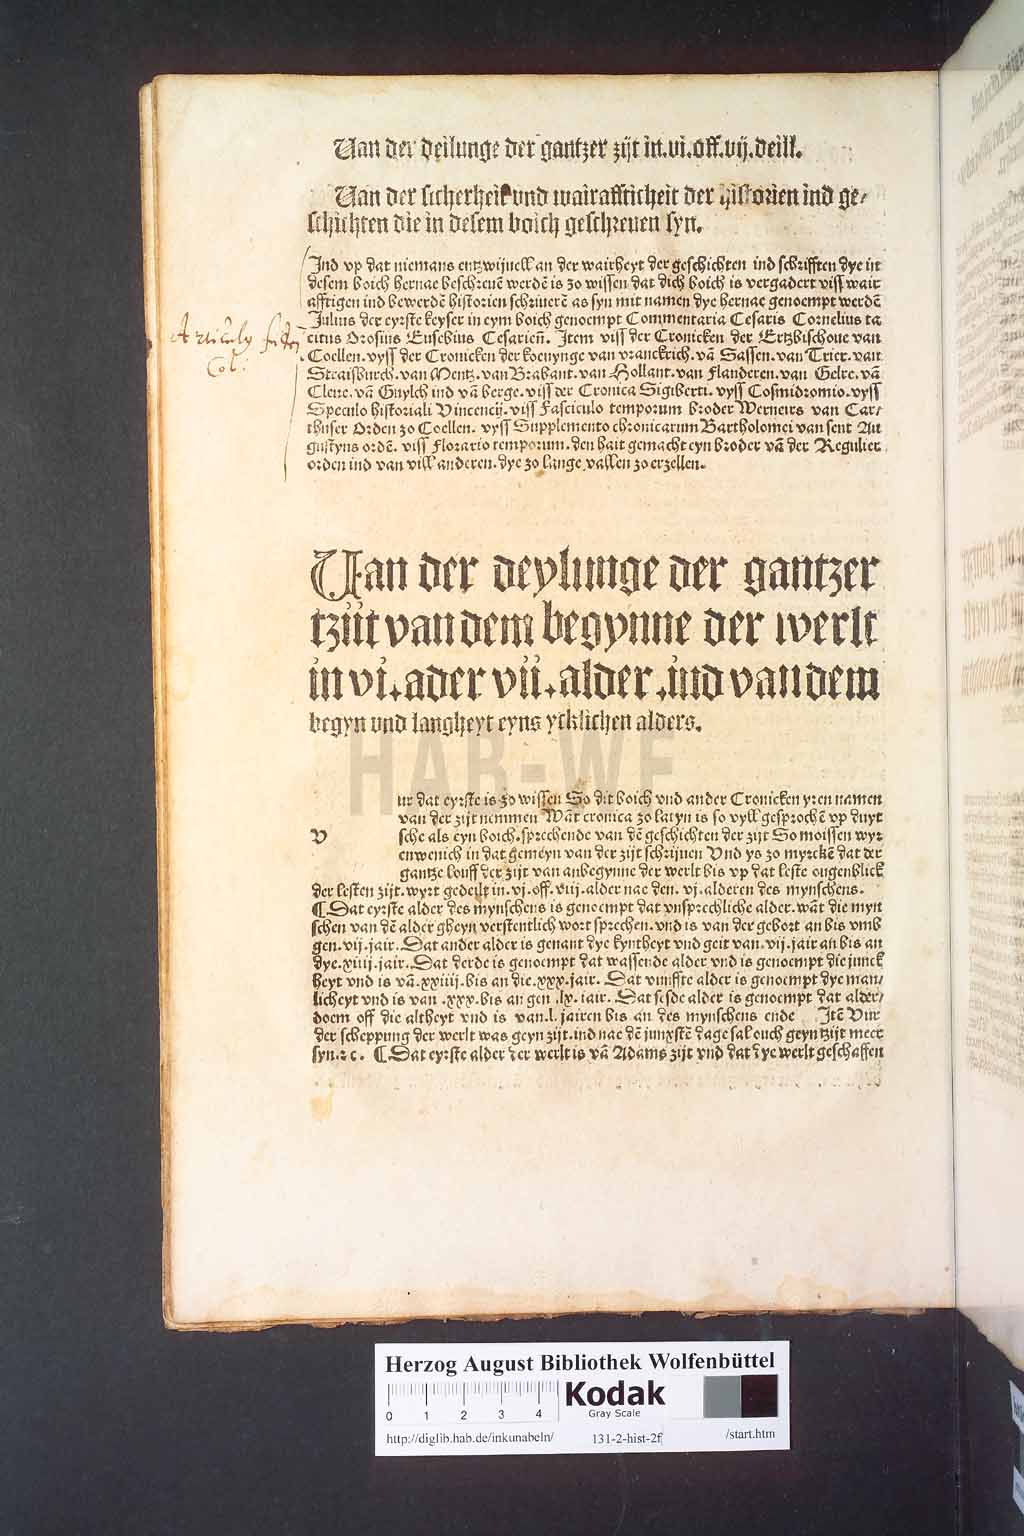 Uan der deilunge der gantzer zijt in.vi.off.vij.deill.
Uan der sicherheit vnd wairaffticheit der historien ind ge-
schichten die in desem boich geschreuen syn.
Ind vp dat niemans entzwijuell an der wairheyt der geschichten ind schrifften dye in
desem boich hernae beschreuē werdē is zo wissen dat dich boich is vergadert viss wair
afftigen ind bewerdē historien schriuerē as syn mit namen dye hernae genoempt werdē
Julius der eyrste keyser in eym boich genoempt Commentaria Cesaris Cornelius ta
citus Orosius Eusebius Cesarieñ. Item viss der Cronicken der Ertzbischoue van
Coellen.vyss der Cronicken der koenynge van vranckrich.vā Sassen.van Trier.van
Straisburch.van Mentz.van Brabant.van Hollant.van Flanderen.van Gelre.vā
Cleue.vā Guylch ind vā berge.viss der Cronica Sigiberti.vyss Cosmidromio.vyss
Speculo historiali Vincencij.viss Fasciculo temporum broder Werneirs van Car-
thuser Orden zo Coellen.vyss Supplemento chronicarum Bartholomei van sent Au
gustyns ordē.viss Florario temporum.den hait gemacht eyn broder vā der Regulier
orden ind van vill anderen.dye zo lange vallen zo erzellen.
Articuly
Col.
Uan der deylunge der gantzer
tzijt van dem begynne der werlt
in vi.ader vii.alder.ind van dem
begyn vnd langheyt eyns ytklichen alders.
v
ur dat eyrste is zo wissen So dit boich vnd ander Cronicken yren namen
van der zijt nemmen Wāt cronica zo latyn is so vyll gesprochē vp duyt
sche als eyn boich.sprechende van dē geschichten der zijt So moissen wyr
enwenich in dat gemeyn van der zijt schrijuen Vnd ys zo myrckē dat der
gantze louff der zijt van anbegynne der werlt bis vp dat leste ougenblick
der lesten zijt.wyrt gedeilt in.vj.off.viij.alder nae den.vj.alderen des mynschens.
¶ Dat eyrste alder des mynschens is genoempt dat vnsprechliche alder.wāt die myn
schen van dē alder gheyn verstentlich wort sprechen.vnd is van der gebort an bis vmb
gen.vij.jair. Dat ander alder is genant dye kyntheyt vnd geit van.vij.jair an bis an
dye.xiiij.jair. Dat derde is genoempt dat wassende alder vnd is genoempt die junck
heyt vnd is vā.xxiiij.bis an die.xxx.jair. Dat vunffte alder is genoempt dye man-
licheyt vnd is van .xxx.bis an gen .lx.iair. Dat sesde alder is genoempt dat alder-
doem off die altheyt vnd is van.l.jairen bis an des mynschens ende Itē Vur
der scheppung der werlt was geyn zijt.ind nae dē junxstē dage sal ouch geyn tzijt meer
syn.ꝛc. ¶ Dat eyrste alder der werlt is vā Adams zijt vnd dat dye werlt geschaffen
HAB-WF
Herzog August Bibliothek Wolfenbüttel
0 1 2 3 4
Kodak
Gray Scale
http://diglib.hab.de/inkunabeln/ 131-2-hist-2f /start.htm